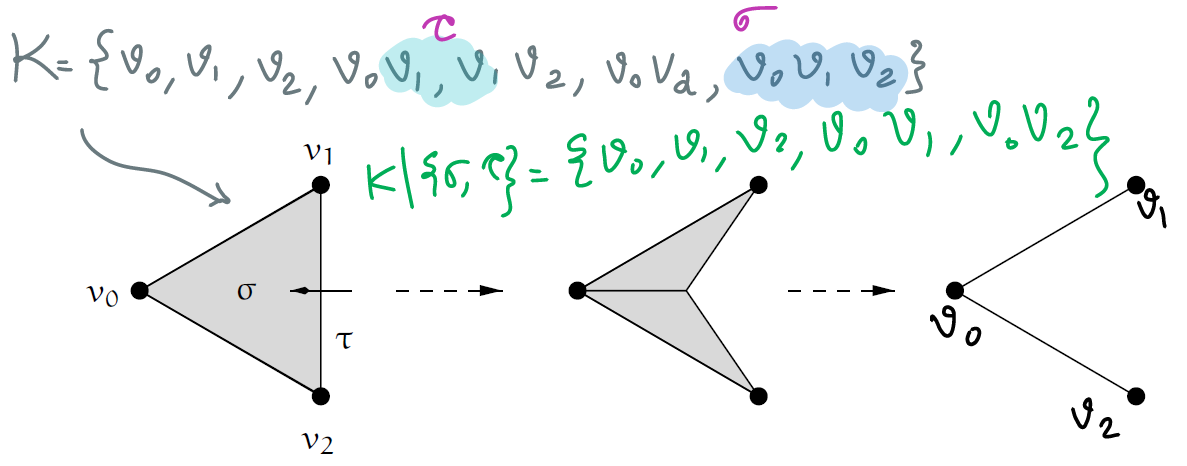 τ σ
K = {v₀, v₁, v₂, v₀v₁, v₁v₂, v₀v₂, v₀v₁v₂}
K|{σ, τ} = {v₀, v₁, v₂, v₀v₁, v₀v₂}
v₁
v₁
v₀ σ
v₀
τ
v₂
v₂